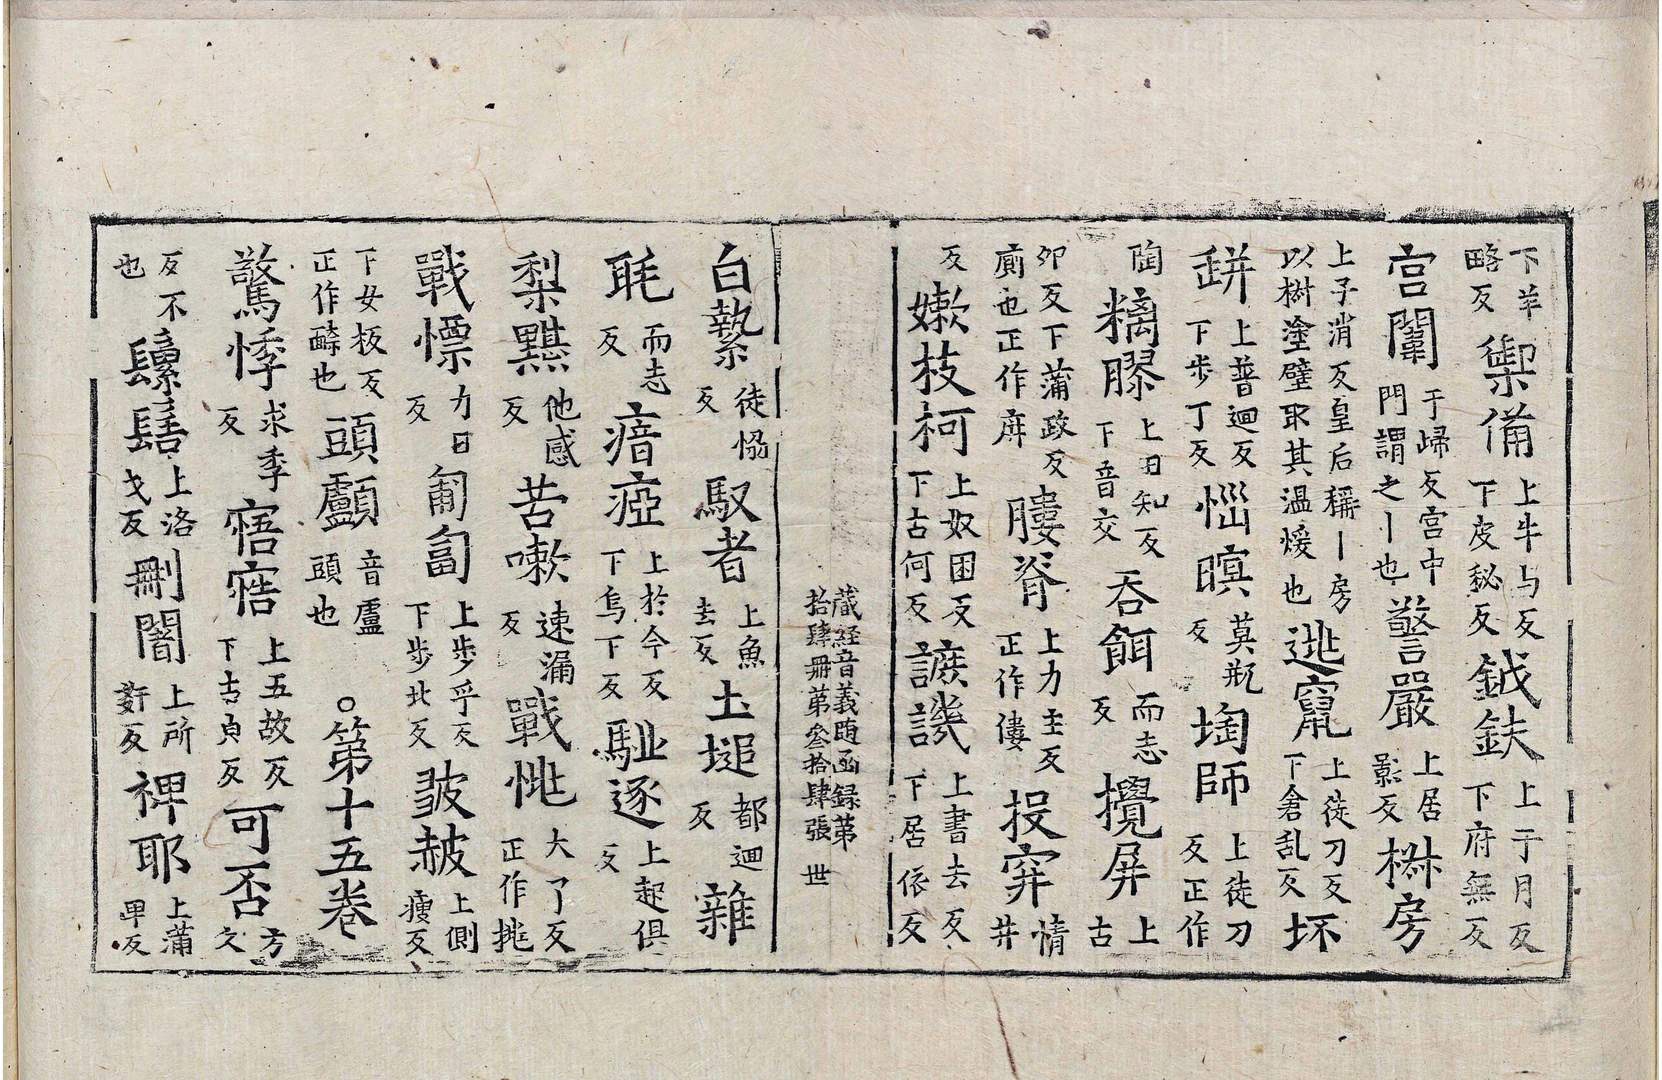 下羊略反禦備上牛与反下皮秘反鉞鈇上于月反下府無反
宮闈于歸反宮中門謂之丨也警嚴上居景反椒房
上子消反皇后稱丨房以樹塗壁取其温煖也逃竄上徒刀反下倉乱反坏
缾上普迴反下步丁反㥾暝莫瓶反掏師上徒刀反正作
陶䊨膠上丑知反下音交吞餌而志反攪屏上古
卯反下蒲政反廁也正作庰膢脊上力主反正作僂投穽情井
反嫰枝柯上奴困反下古何反謶譏上書去反下居依反
藏経音義随函録第拾肆冊第叄拾肆張 世
白縶徒恊反馭者上魚去反土塠都迴反雜
毦而志反瘖瘂上於今反下烏下反駈逐上起俱反
梨黮他感反苦嗽速漏反戰恌大了反正作挑
戰慄力日反匍匐上步乎反下步北反皺赧上側瘦反
下女板反正作䩄也頭顱音盧頭也○第十五卷
驚悸求季反寤寤上五故反下古貞反可否方久
反不也鬚髻上洛戈反刪闍上所奸反禆耶上蒲卑反